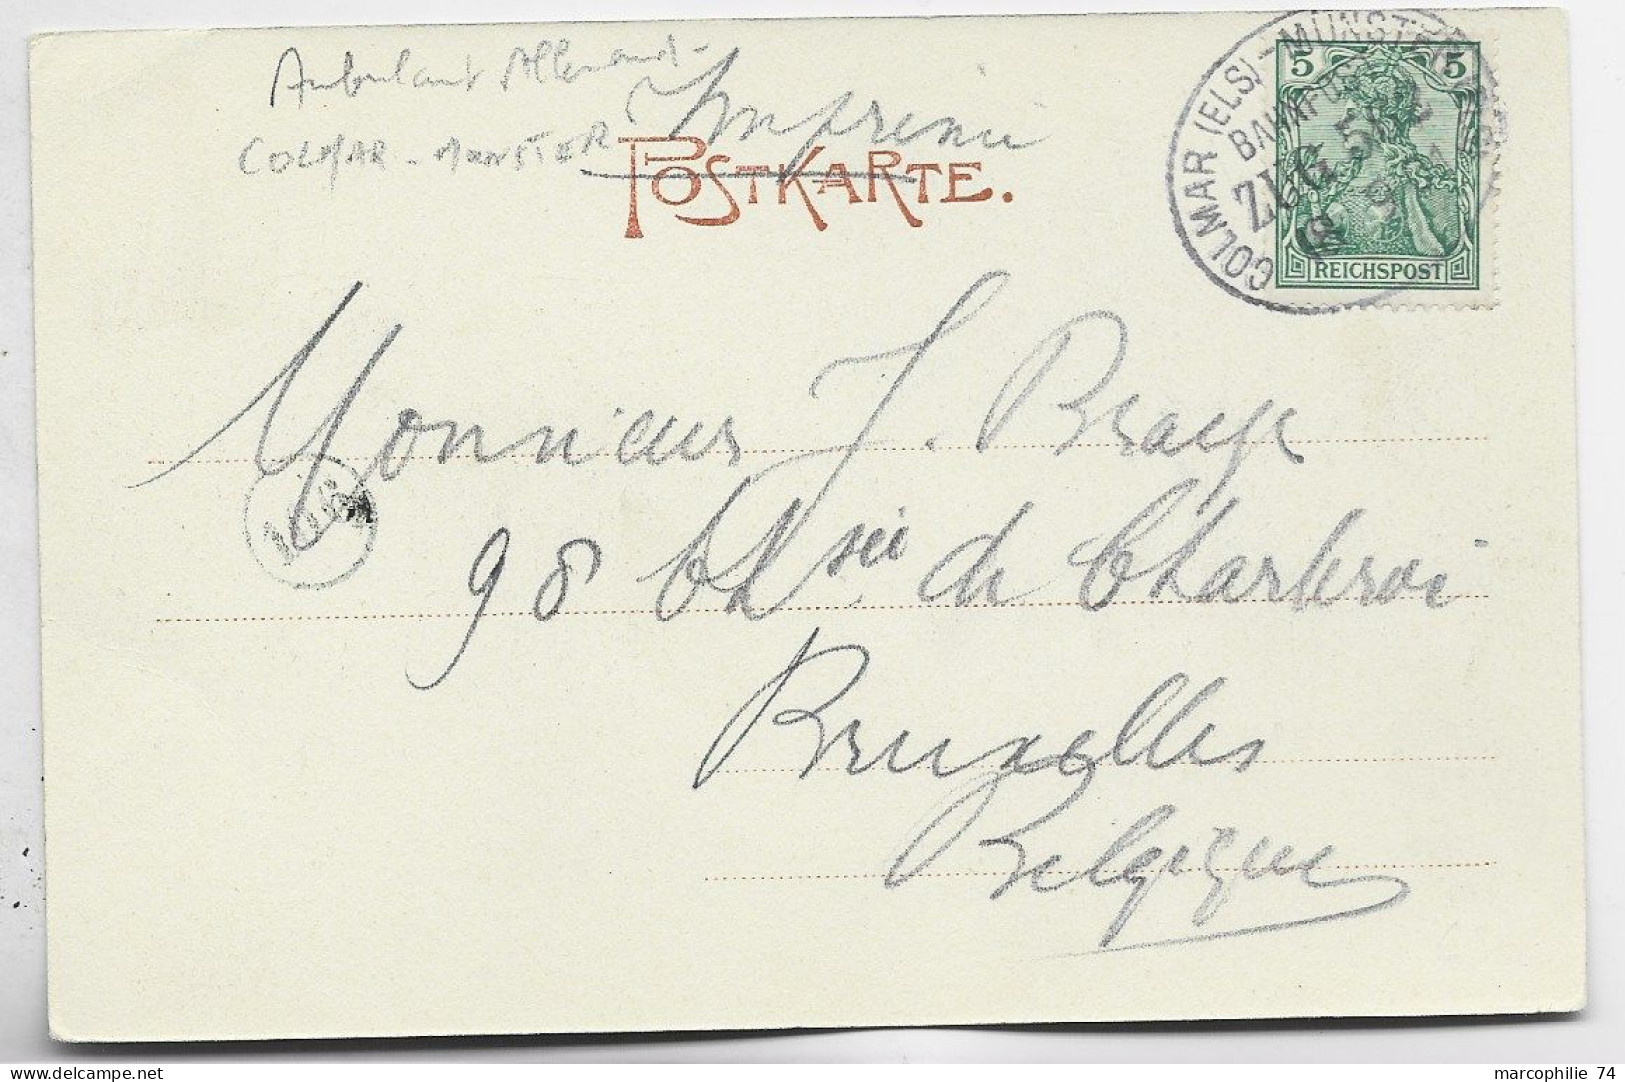 Ambulant Allemand -
COLMAR - MUNSTER
Imprimé
POSTKARTE.
COLMAR (ELS) - MÜNSTER
BAHNPOST
ZUG
5 5
REICHSPOST
Monsieur J. Braye
98 Chsée de Charleroi
Bruxelles
Belgique
marcophilie 74